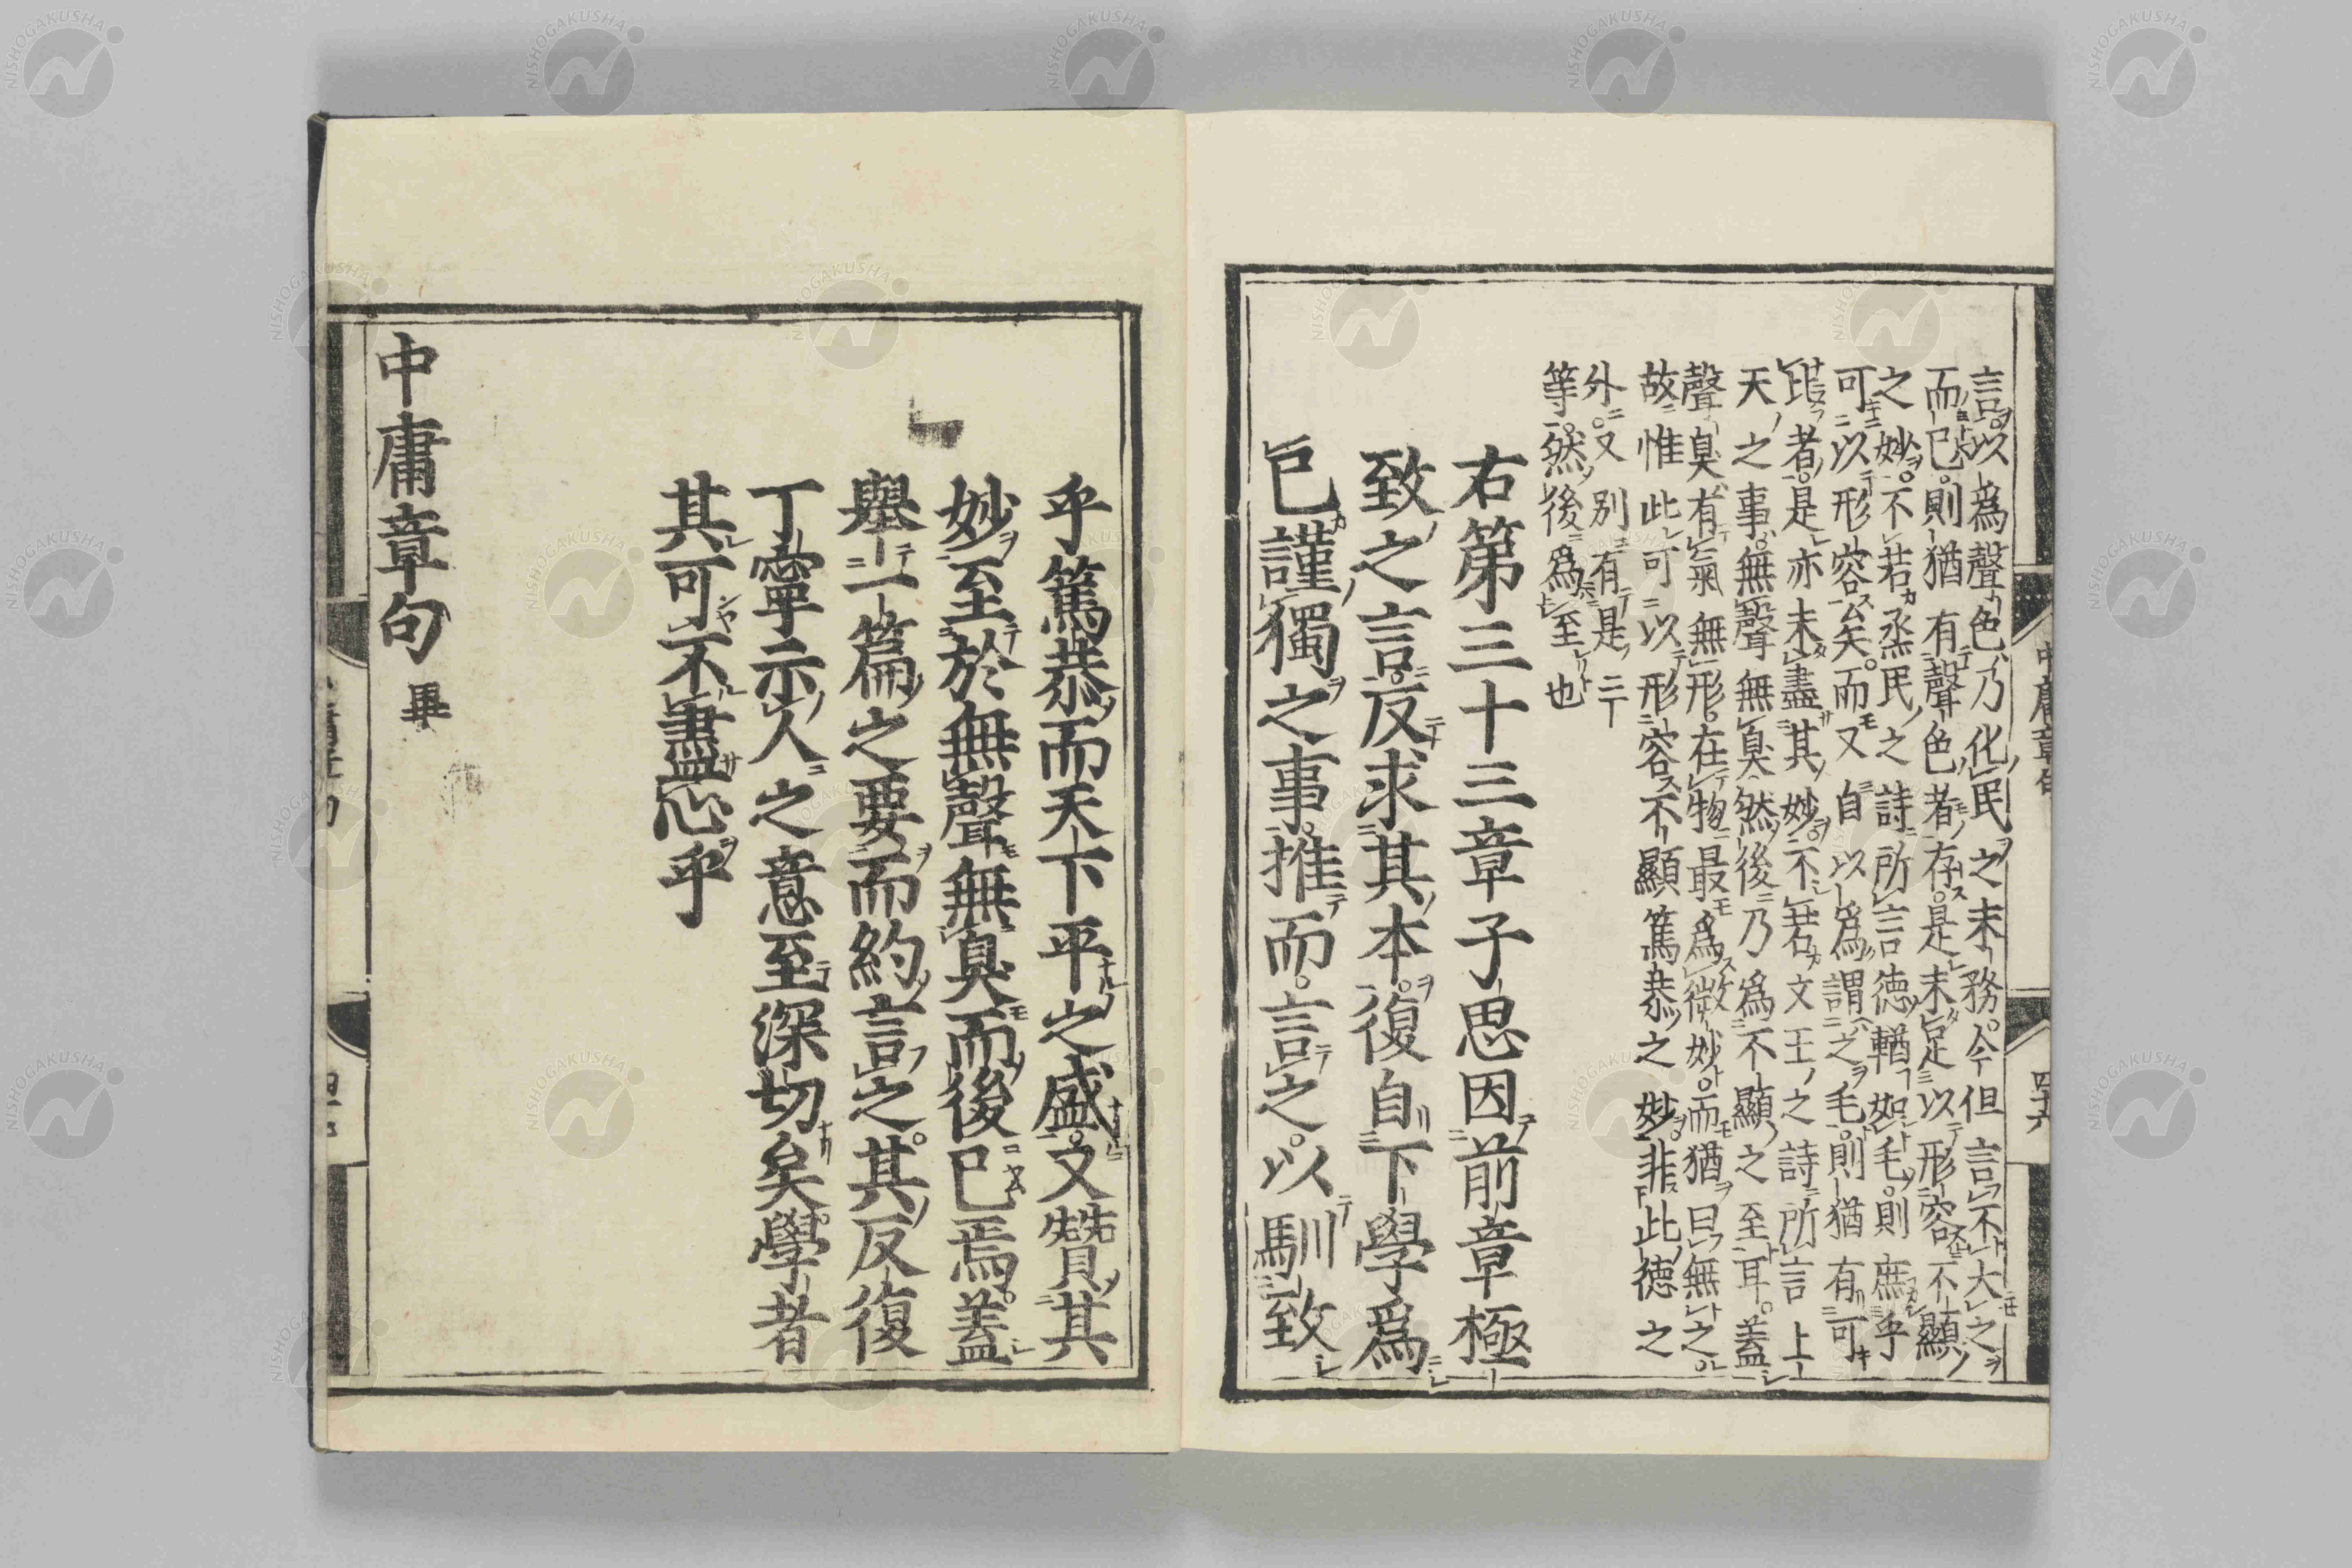 言以爲聲色乃化民之末務今但言不大之
而已則猶有聲色者存是未足以形容不顯
之妙不若烝民之詩所言德輶如毛則庶乎
可以形容矣而又自以爲謂之毛則猶有可
比者是亦未盡其妙不若文王之詩所言上
天之事無聲無臭然後乃爲不顯之至耳蓋
聲臭有氣無形在物最爲微妙而猶曰無之
故惟此可以形容不顯篤恭之妙非此德之
外又別有是三
等然後爲至也
右第三十三章子思因前章極
致之言反求其本復自下學爲
已謹獨之事推而言之以馴致
乎篤恭而天下平之盛又贊其
妙至於無聲無臭而後已焉蓋
舉一篇之要而約言之其反復
丁寧示人之意至深切矣學者
其可不盡心乎
中庸章句畢
中庸章句
NISHOGAKUSHA